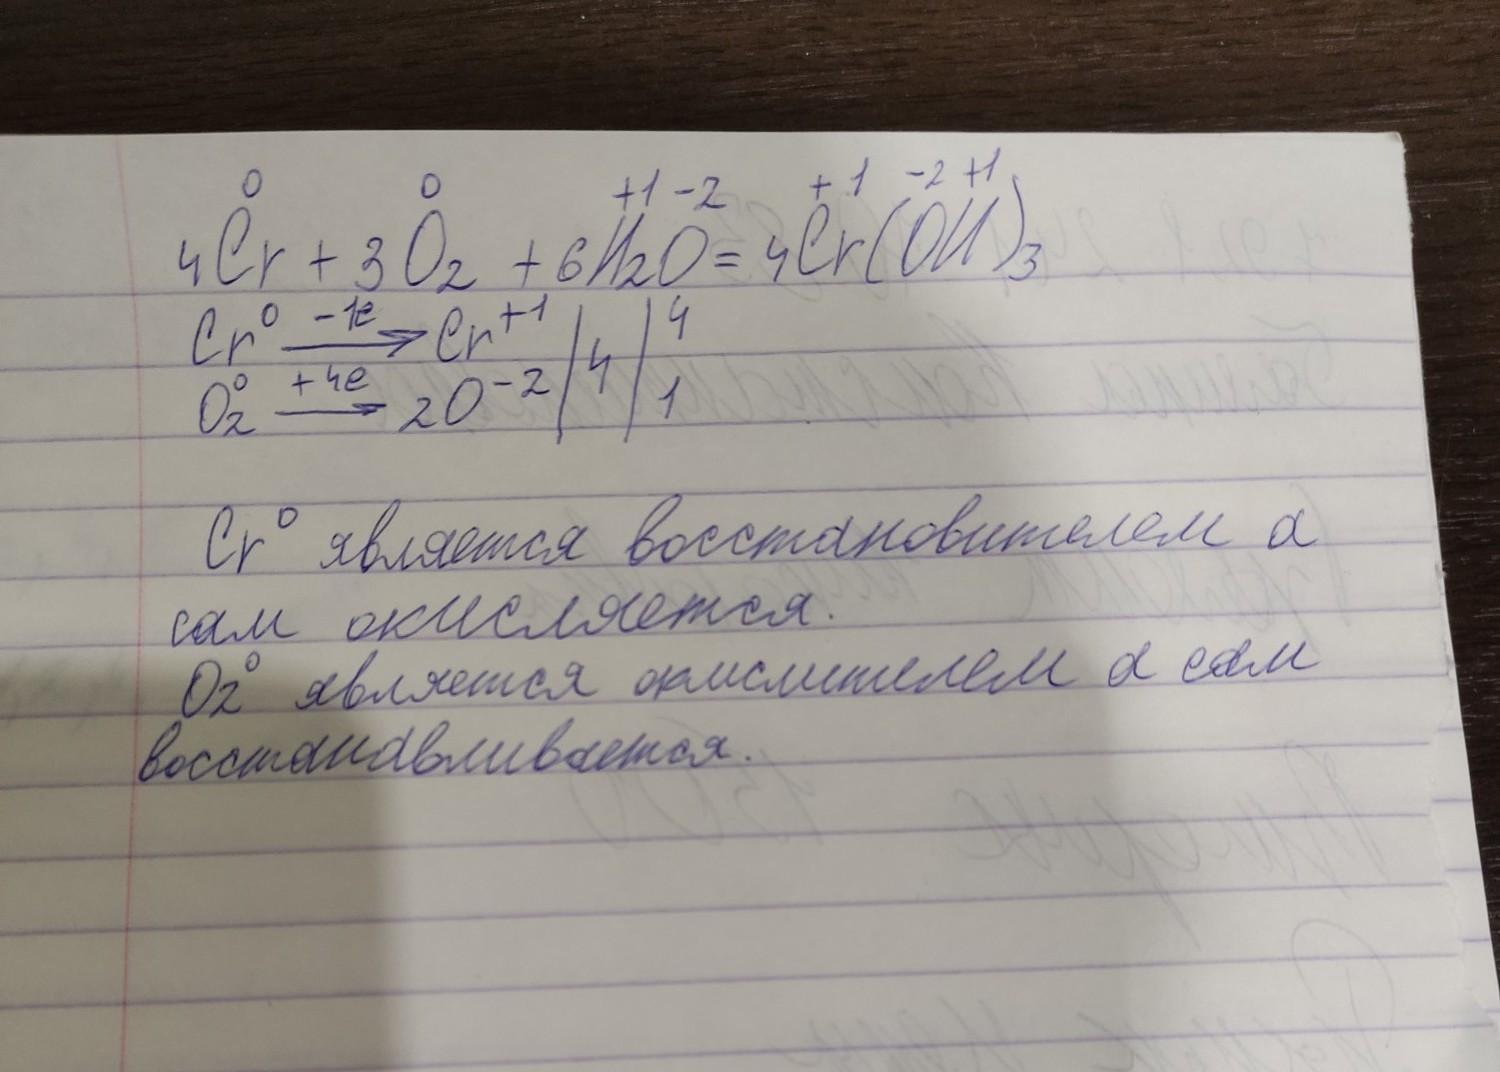 0 0 +1 -2 +1 -2 +1
4Cr + 3O2 + 6H2O = 4Cr(OH)3
Cr⁰ -1e → Cr⁺¹ | 4 | 4
O2⁰ +4e → 2O⁻² | | 1
Cr⁰ является восстановителем а
сам окисляется.
O2⁰ является окислителем а сам
восстанавливается.